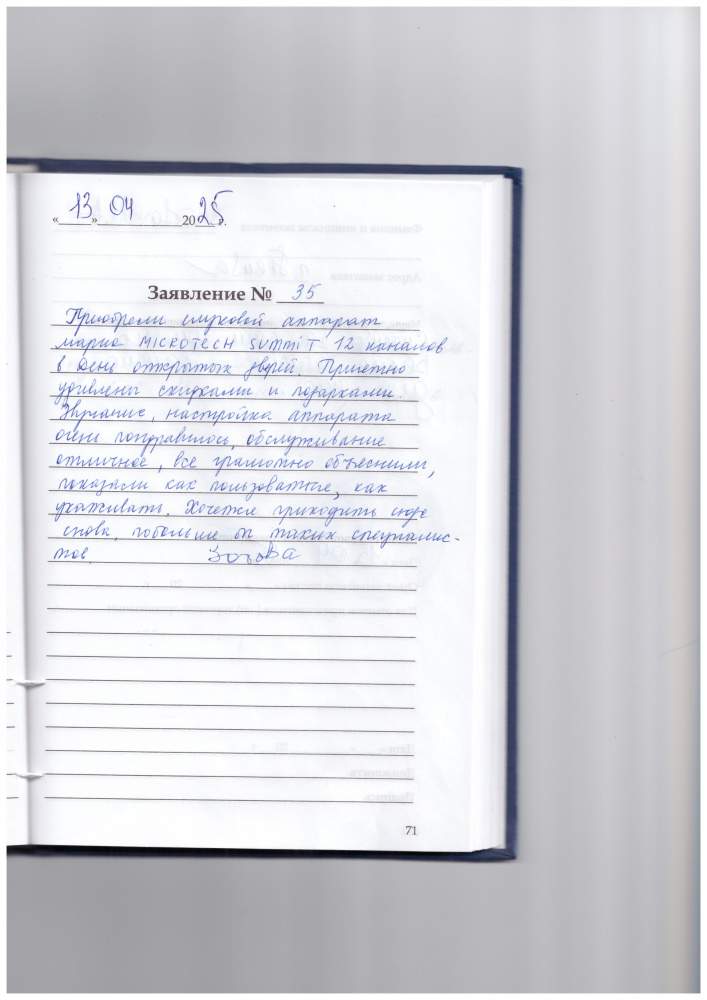 «13» 04 2025 г.
Заявление № 35
Приобрели слуховой аппарат
марки MICROTECH SUMMIT 12 каналов
в День открытых дверей. Приятно
удивлены скидками и подарками.
Звучание, настройка аппарата
очень понравилось, обслуживание
отличное, все грамотно объяснили,
показали как пользоваться, как
ухаживать. Хочется приходить сюда
снова, побольше бы таких специалис-
тов. Зотова
71